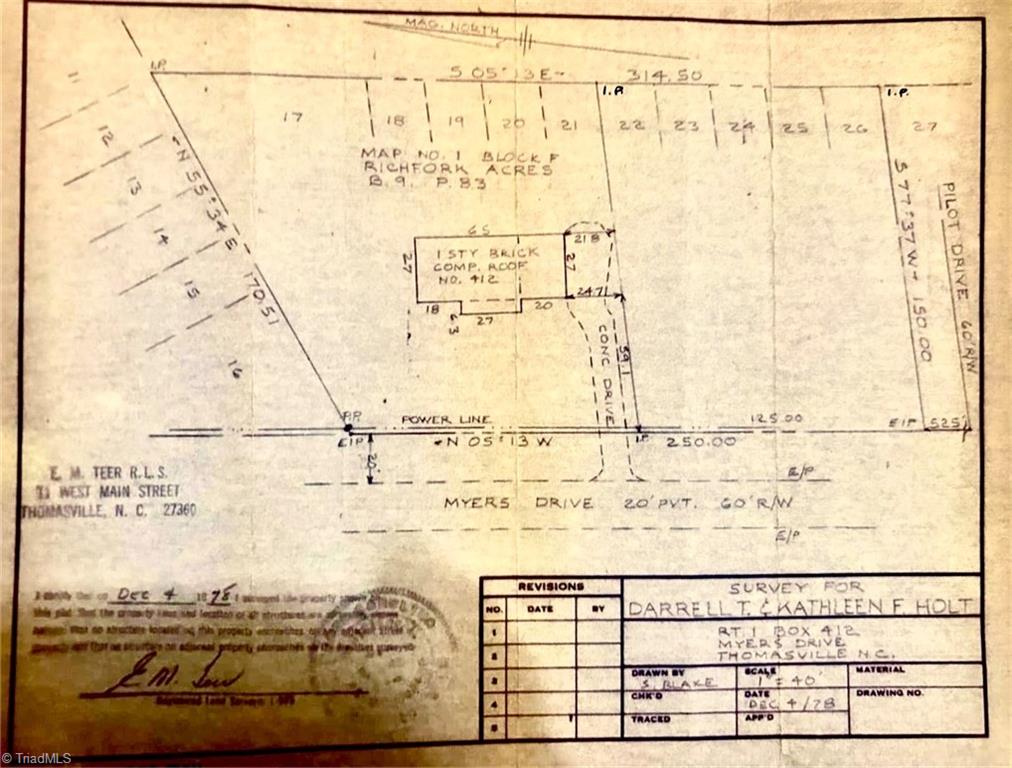 MAG. NORTH
I.P.
S 05° 13 E 314.50
I.P.
I.P.
11
12
13
14
15
16
17
18
19
20
21
22
23
24
25
26
27
N 55° 34 E
170.51
MAP NO. 1 BLOCK F
RICHFORK ACRES
B. 9. P. 83
S 77° 37 W 150.00
PILOT DRIVE 60' R/W
65
21.8
27
27
1 STY BRICK
COMP. ROOF
NO. 412
18
6.3
27
20
24.7
CONC DRIVE
59.1
P.P.
POWER LINE
125.00
EIP
525'
EIP
N 05° 13 W
I.P.
250.00
20'
E/P
MYERS DRIVE 20' PVT. 60' R/W
E/P
E. M. TEER R.L.S.
11 WEST MAIN STREET
THOMASVILLE, N. C. 27360
I certify that on DEC 4 1978 I surveyed the property shown
this plat, that the property lines and location of all structures are
that no structure located on this property encroaches on any adjacent street
property and that no structure on adjacent property encroaches on the premises surveyed
E. M. Teer
Registered Land Surveyor
REVISIONS
NO. DATE BY
1
2
3
4
5
SURVEY FOR
DARRELL T. & KATHLEEN F. HOLT
RT. 1 BOX 412
MYERS DRIVE
THOMASVILLE N.C.
DRAWN BY
S. BLAKE
SCALE
1" = 40'
MATERIAL
CHK'D
DATE
DEC 4/78
DRAWING NO.
TRACED
APP'D
© TriadMLS